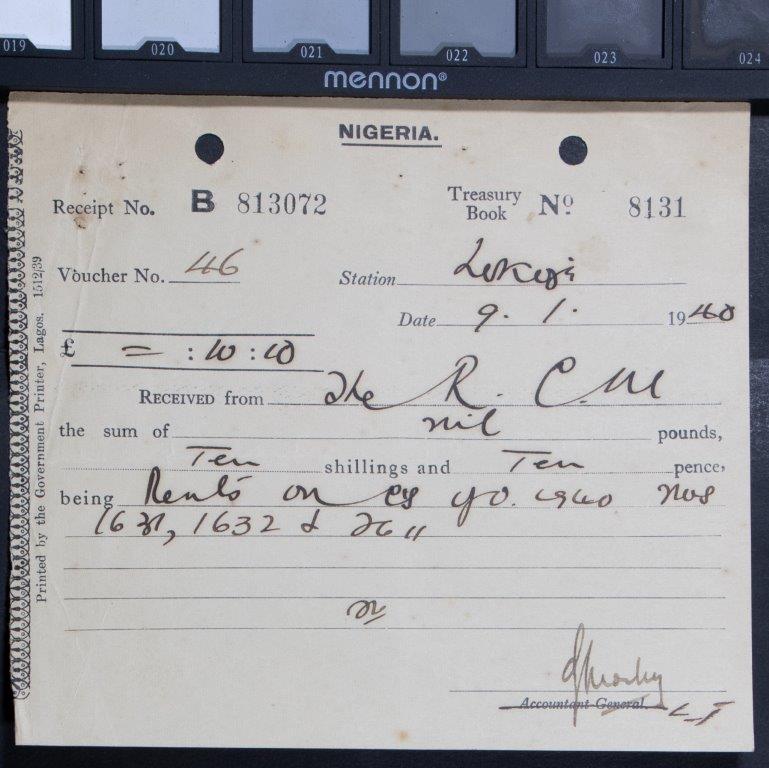 019 020 021 022 023 024
mennon®
NIGERIA.
Receipt No. B 813072 Treasury Book Nº 8131
Voucher No. 46 Station Lokoja
Date 9. 1. 1940
£ = : 10 : 10
RECEIVED from The R. C. M
the sum of nil pounds,
Ten shillings and Ten pence,
being Rents on 1940 nos
1632 &
Accountant-General. L T
Printed by the Government Printer, Lagos. 1512/39